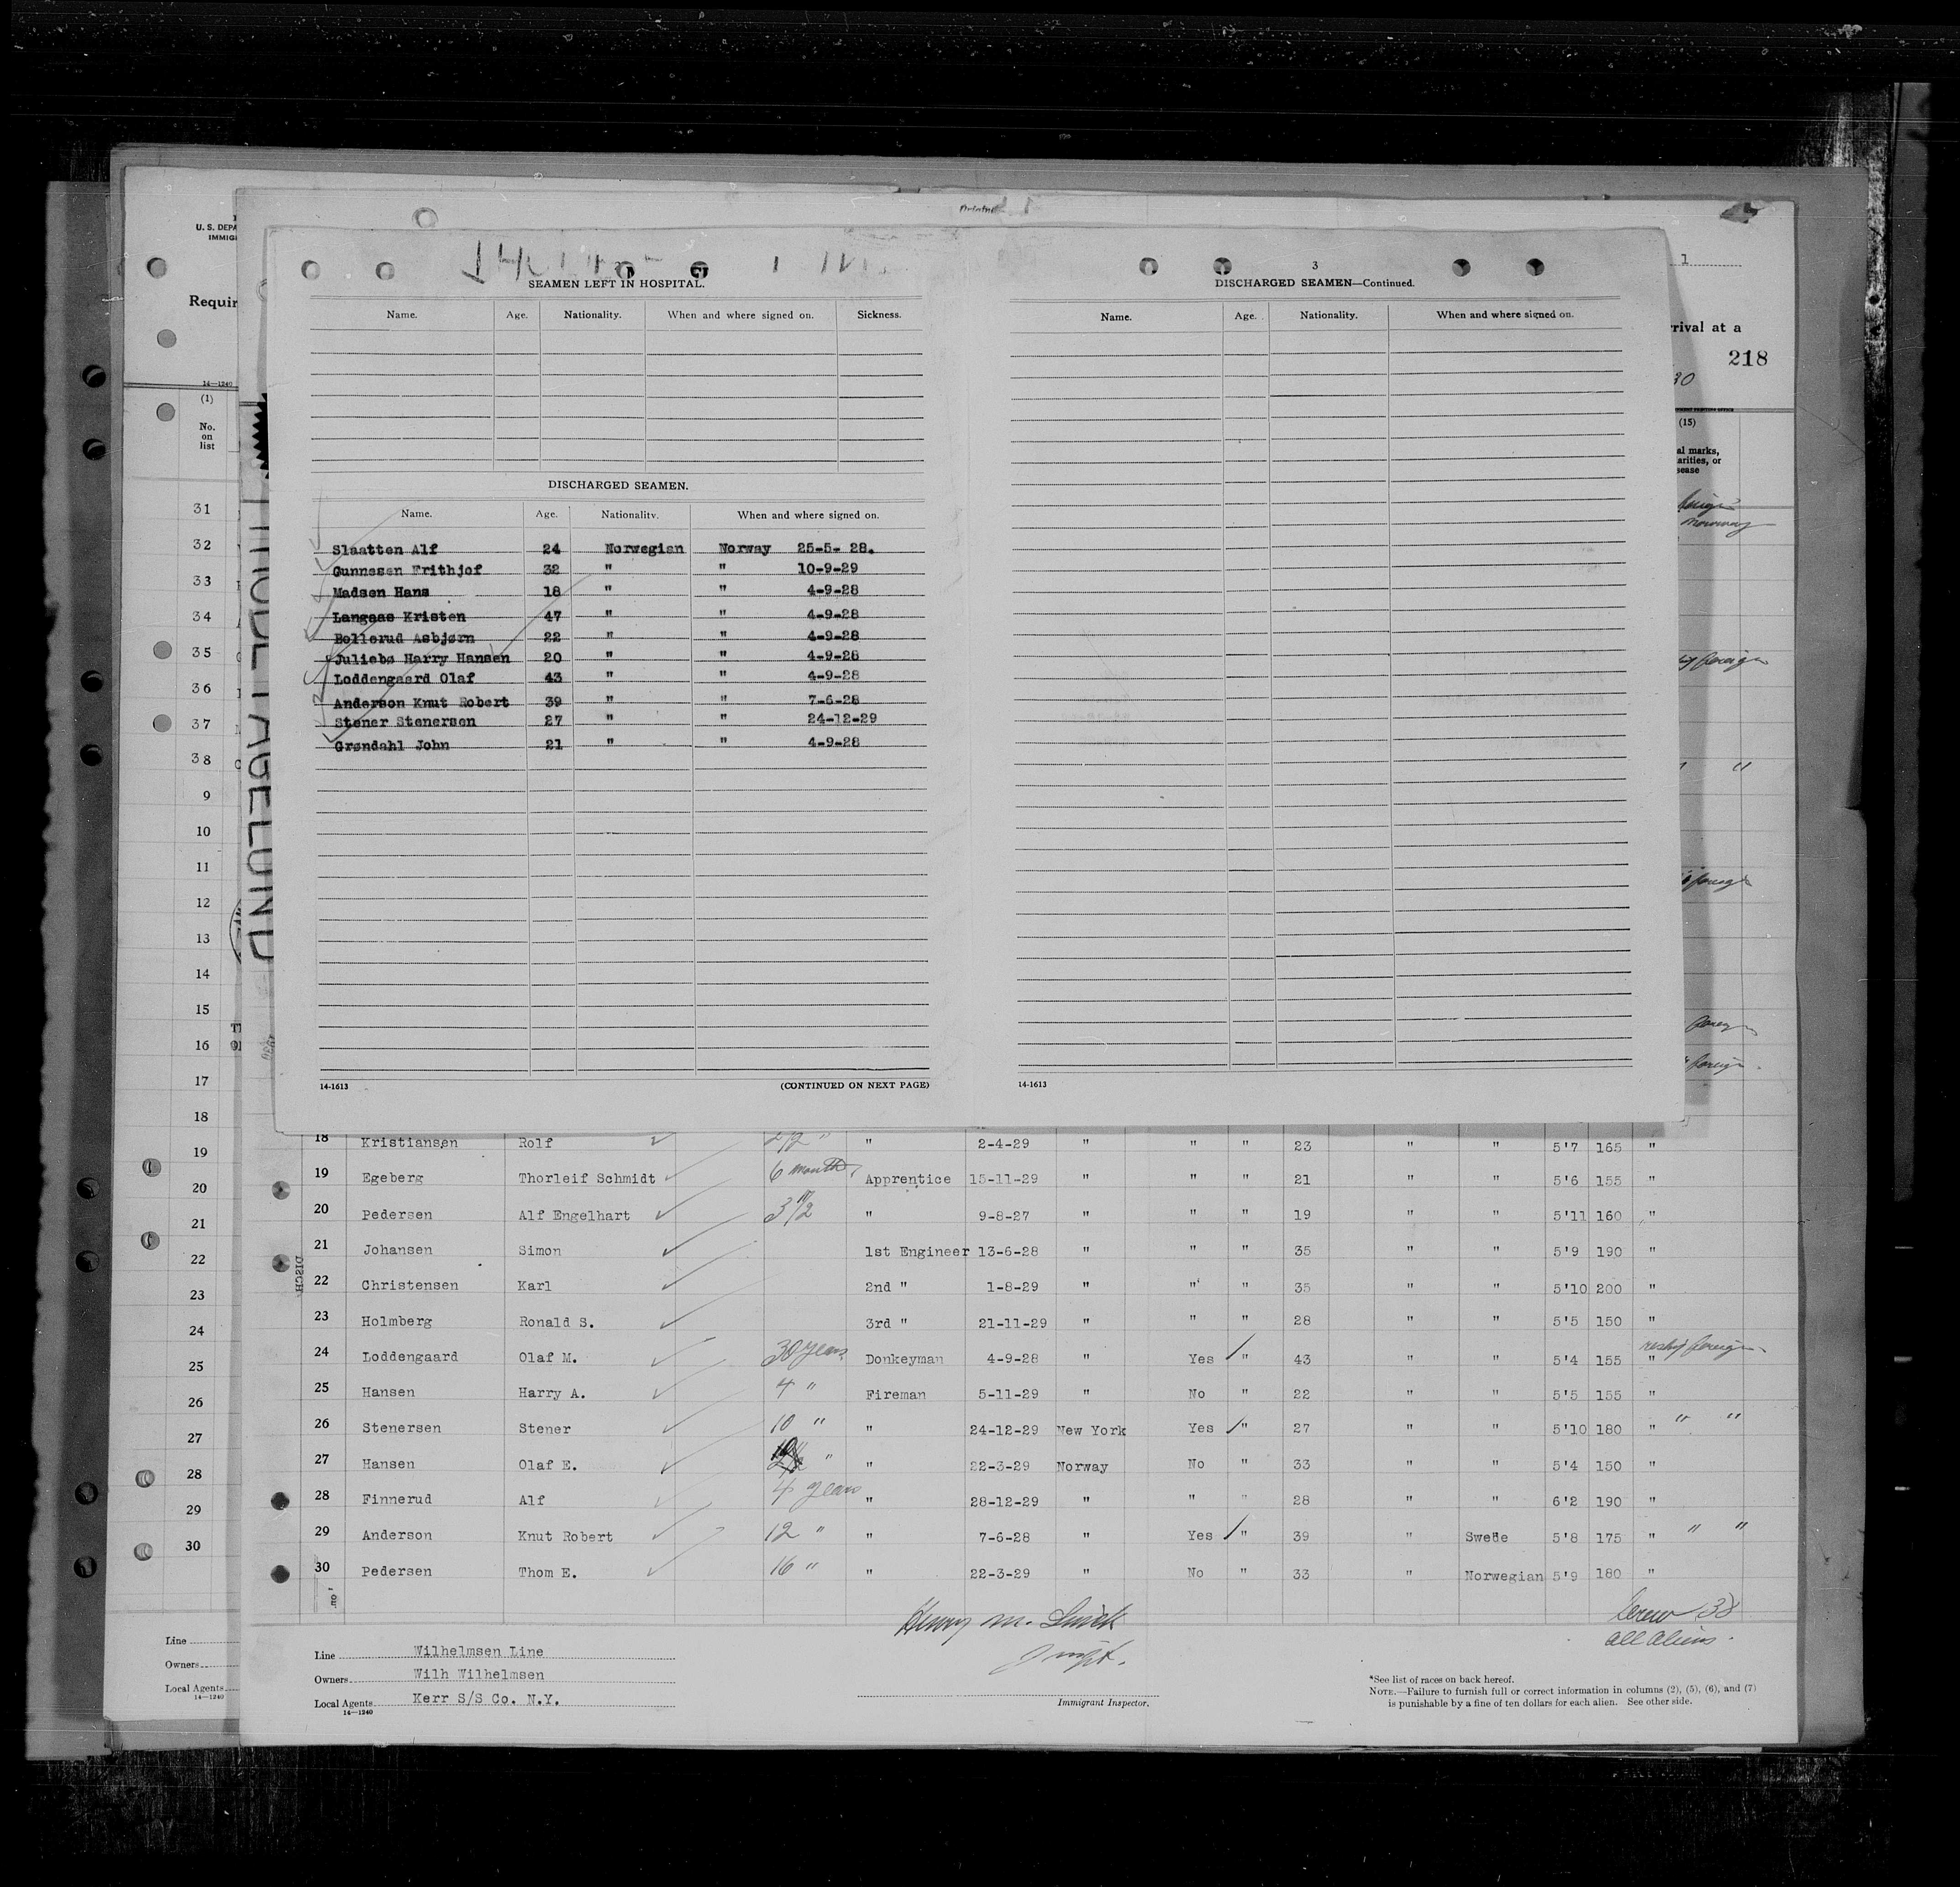 U. S. DEPA
IMMIG
Requir
14—1240
(1)
No.
on
list
31
32
33
34
35
36
37
38
9
10
11
12
13
14
15
16
17
18
19
20
21
22
23
24
25
26
27
28
29
30
Line
Owners
Local Agents
14—1240
THODE FAGELUND
1
rrival at a
218
30
(15)
al marks,
arities, or
sease
foreign
Norway
foreign
" "
foreign
foreign
foreign
SEAMEN LEFT IN HOSPITAL.
Name. Age. Nationality. When and where signed on. Sickness.
DISCHARGED SEAMEN.
Name. Age. Nationality. When and where signed on.
Slaatten Alf 24 Norwegian Norway 25-5- 28.
Gunnesen Frithjof 32 " " 10-9-29
Madsen Hans 18 " " 4-9-28
Langaas Kristen 47 " " 4-9-28
Bollerud Asbjørn 22 " " 4-9-28
Juliebø Harry Hansen 20 " " 4-9-28
Loddengaard Olaf 43 " " 4-9-28
Anderson Knut Robert 39 " " 7-6-28
Stener Stenersen 27 " " 24-12-29
Grøndahl John 21 " " 4-9-28
14-1613 (CONTINUED ON NEXT PAGE)
3
DISCHARGED SEAMEN—Continued.
Name. Age. Nationality. When and where signed on.
14-1613
18 Kristiansen Rolf " " 2-4-29 " " " 23 " " 5'7 165 "
19 Egeberg Thorleif Schmidt 6 months Apprentice 15-11-29 " " " 21 " " 5'6 155 "
20 Pedersen Alf Engelhart 3 1/2 " " 9-8-27 " " " 19 " " 5'11 160 "
21 Johansen Simon 1st Engineer 13-6-28 " " " 35 " " 5'9 190 "
22 Christensen Karl 2nd " 1-8-29 " " " 35 " " 5'10 200 "
23 Holmberg Ronald S. 3rd " 21-11-29 " " " 28 " " 5'5 150 "
24 Loddengaard Olaf M. 30 years Donkeyman 4-9-28 " Yes " 43 " " 5'4 155 " reship foreign
25 Hansen Harry A. 4 " Fireman 5-11-29 " No " 22 " " 5'5 155 "
26 Stenersen Stener 10 " " 24-12-29 New York Yes " 27 " " 5'10 180 " " "
27 Hansen Olaf E. " " 22-3-29 Norway No " 33 " " 5'4 150 "
28 Finnerud Alf 4 years " 28-12-29 " " " 28 " " 6'2 190 "
29 Anderson Knut Robert 12 " " 7-6-28 " Yes " 39 " Swede 5'8 175 " " "
30 Pedersen Thom E. 16 " " 22-3-29 " No " 33 " Norwegian 5'9 180 "
Crew 38
all aliens.
Line Wilhelmsen Line
Owners Wilh Wilhelmsen
Local Agents Kerr S/S Co. N.Y.
14—1240
Immigrant Inspector.
*See list of races on back hereof.
NOTE.—Failure to furnish full or correct information in columns (2), (5), (6), and (7)
is punishable by a fine of ten dollars for each alien. See other side.